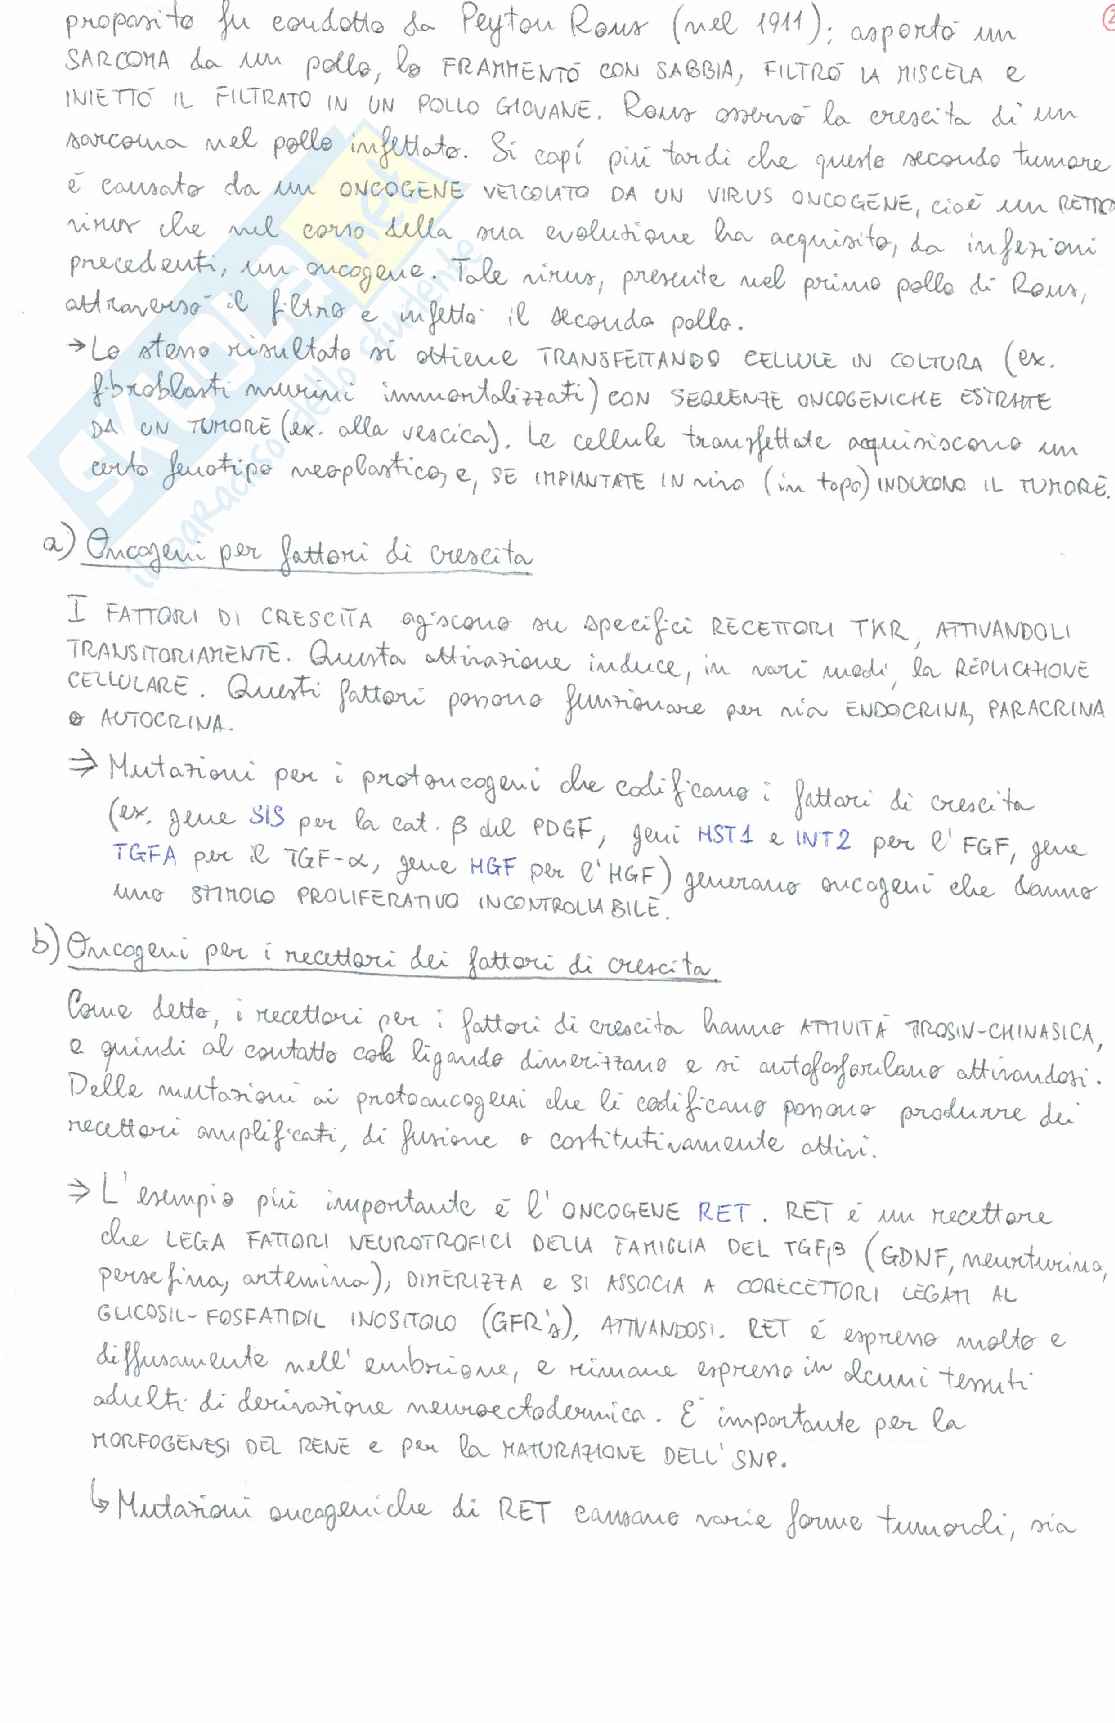 2
proposito fu condotto da Peyton Rous (nel 1911): asportò un
SARCOMA da un pollo, lo FRAMMENTÒ CON SABBIA, FILTRÒ LA MISCELA e
INIETTÒ IL FILTRATO IN UN POLLO GIOVANE. Rous osservò la crescita di un
sarcoma nel pollo infettato. Si capí piú tardi che questo secondo tumore
è causato da un ONCOGENE VEICOLATO DA UN VIRUS ONCOGENE, cioè un RETRO
virus che nel corso della sua evoluzione ha acquisito, da infezioni
precedenti, un oncogene. Tale virus, presente nel primo pollo di Rous,
attraversò il filtro e infettò il secondo pollo.
→ Lo stesso risultato si ottiene TRANSFETTANDO CELLULE IN COLTURA (ex.
fibroblasti murini immortalizzati) CON SEQUENZE ONCOGENICHE ESTRATTE
DA UN TUMORE (ex. alla vescica). Le cellule transfettate acquisiscono un
certo fenotipo neoplastico, e, SE IMPIANTATE IN vivo (in topo) INDUCONO IL TUMORE.
a) Oncogeni per fattori di crescita
I FATTORI DI CRESCITA agiscono su specifici RECETTORI TKR, ATTIVANDOLI
TRANSITORIAMENTE. Questa attivazione induce, in vari modi, la REPLICAZIONE
CELLULARE. Questi fattori possono funzionare per via ENDOCRINA, PARACRINA
o AUTOCRINA.
⇒ Mutazioni per i protoncogeni che codificano i fattori di crescita
(ex. gene SIS per la cat. β del PDGF, geni HST1 e INT2 per l'FGF, gene
TGFA per il TGF-α, gene HGF per l'HGF) generano oncogeni che danno
uno STIMOLO PROLIFERATIVO INCONTROLLABILE.
b) Oncogeni per i recettori dei fattori di crescita
Come detto, i recettori per i fattori di crescita hanno ATTIVITÀ TIROSIN-CHINASICA,
e quindi al contatto col ligando dimerizzano e si autofosforilano attivandosi.
Delle mutazioni ai protoncogeni che li codificano possono produrre dei
recettori amplificati, di fusione o costitutivamente attivi.
⇒ L'esempio piú importante è l'ONCOGENE RET. RET è un recettore
che LEGA FATTORI NEUROTROFICI DELLA FAMIGLIA DEL TGFβ (GDNF, neurturina,
persefina, artemina), DIMERIZZA e SI ASSOCIA A CORECETTORI LEGATI AL
GLICOSIL-FOSFATIDIL INOSITOLO (GFR's), ATTIVANDOSI. RET è espresso molto e
diffusamente nell'embrione, e rimane espresso in alcuni tessuti
adulti di derivazione neuroectodermica. È importante per la
MORFOGENESI DEL RENE e per la MATURAZIONE DELL'SNP.
↳ Mutazioni oncogeniche di RET causano varie forme tumorali, sia
SKUOLA.net
il paradiso dello studente